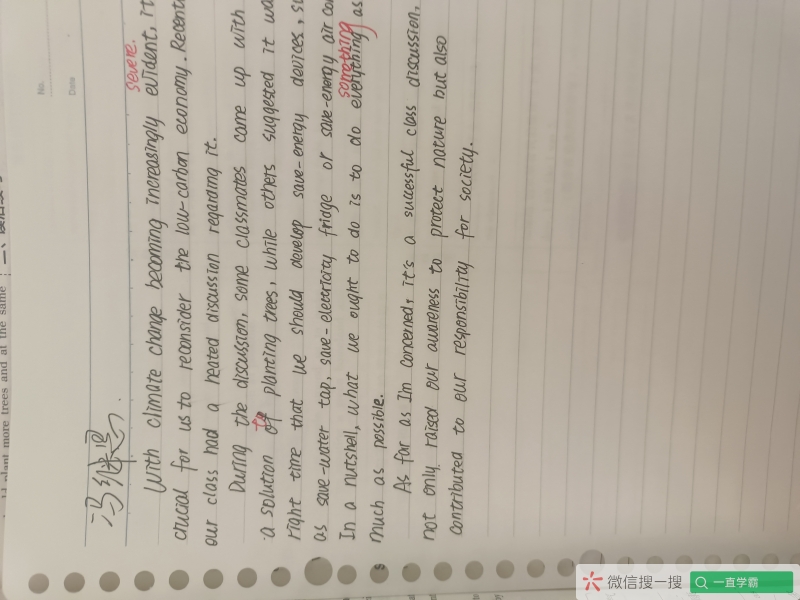 No.
Date
plant more trees and at the same
冯继
severe.
With climate change becoming increasingly evident, it
crucial for us to reconsider the low-carbon economy. Recent
our class had a heated discussion regarding it.
During the discussion, some classmates came up with
to
a solution of planting trees, while others suggested it
right time that we should develop save-energy devices,
as save-water tap, save-electricity fridge or save-energy air
something
In a nutshell, what we ought to do is to do everything as
much as possible.
As far as I'm concerned, it's a successful class discussion,
not only raised our awareness to protect nature but also
contributed to our responsibility for society.
微信搜一搜
一直学霸